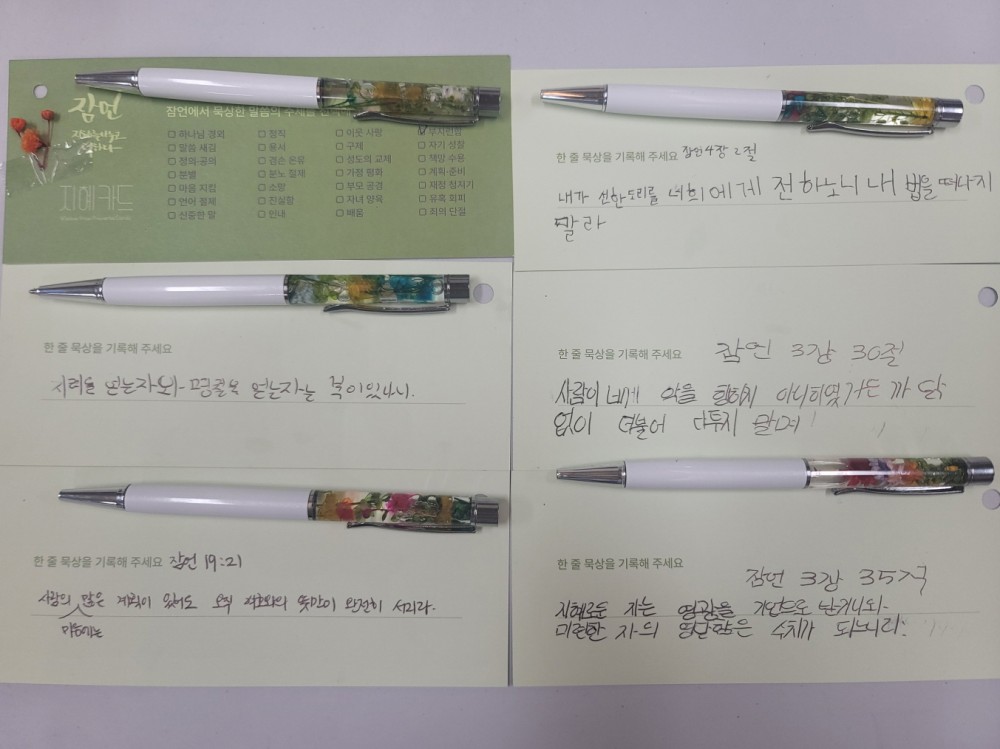 잠언
잠언에서 묵상한 말씀의 주제를
하나님 경외
말씀 새김
정의·공의
분별
마음 지킴
언어 절제
신중한 말
정직
용서
겸손·온유
분노 절제
소망
진실함
인내
이웃 사랑
구제
성도의 교제
가정 평화
부모 공경
자녀 양육
배움
부지런함
자기 성찰
책망 수용
계획·준비
재정 정직기
유혹 회피
죄의 단절
지혜카드
한 줄 묵상을 기록해 주세요 잠언 4장 2절
내가 선한도리를 너희에게 전하노니 내 법을 떠나지
말라
한 줄 묵상을 기록해 주세요
지혜를 얻는자와 명철을 얻는자는 복이있나니.
한 줄 묵상을 기록해 주세요 잠언 3장 30절
사람이 네게 악을 행하지 아니하였거든 까닭
없이 더불어 다투지 말며
한 줄 묵상을 기록해 주세요 잠언 19:21
사람의 많은 계획이 있어도 오직 여호와의 뜻만이 완전히 서리라.
마음에는
한 줄 묵상을 기록해 주세요
잠언 3장 35절
지혜로운 자는 영광을 기업으로 받거니와
미련한 자의 영달함은 수치가 되느니라.